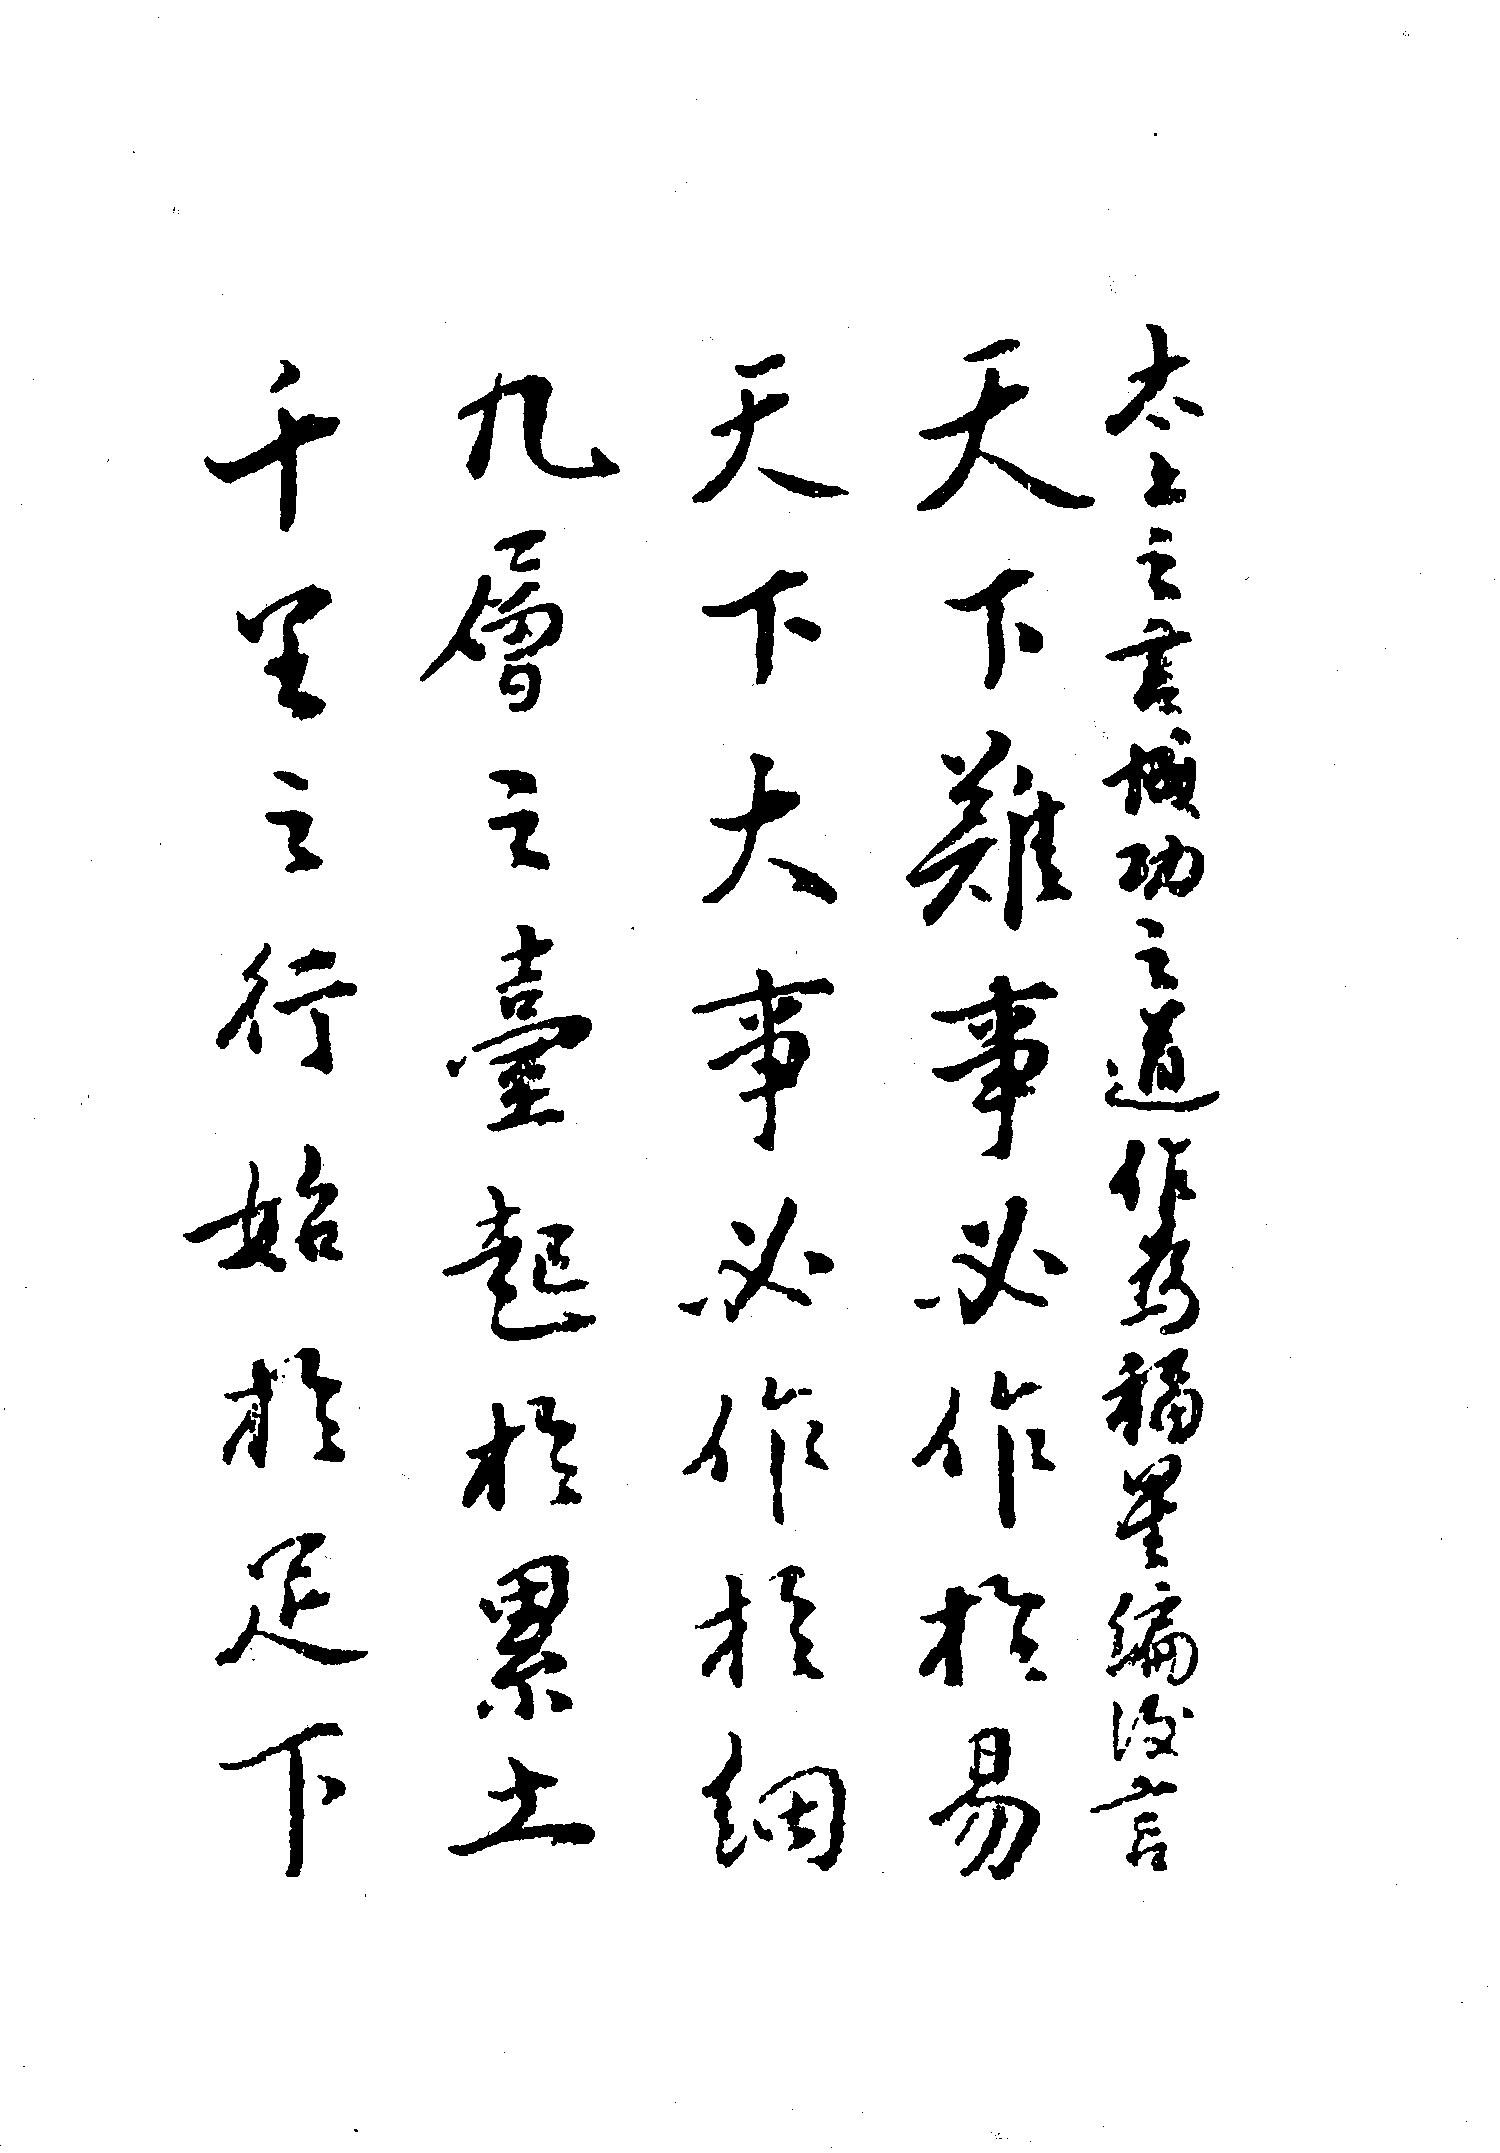 太上之言城功之道作為福星編後言
天下難事必作於易
天下大事必作於細
九層之臺起於累土
千里之行始於足下